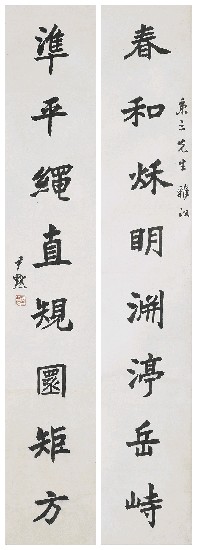 春和秌明淵渟岳峙
東之先生雅政
準平繩直規圜矩方
尹默